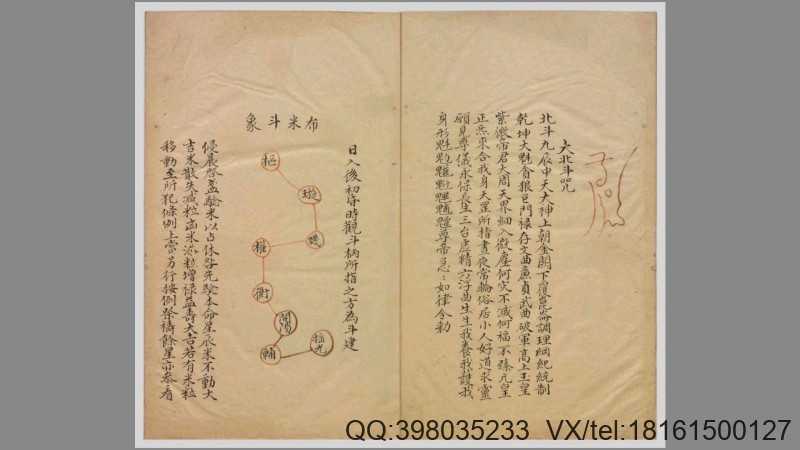 大北斗咒
北斗九辰中天大神上朝金闕下覆崑崙調理綱紀統制
乾坤大魁貪狼巨門禄存文曲廉貞武曲破軍高上玉皇
紫微帝君大周天界細入微塵何灾不滅何福不臻元皇
正炁來合我身天罡所指晝夜常輪俗居小人好道求靈
願見尊儀永保長生三台虛精六淳曲生生我養我護我
身形魁尊帝急:如律令勅
日入後初昏時觀斗柄所指之方為斗建
布米斗象
樞
璇
璣
權
衡
開陽
輔
摇光
候晨啓蓋驗米以占休咎先驗本命星辰米不動大
吉米散失減粒凶米添粒增禄益壽大吉若有米粒
移動至所犯條例上當另行按例祭禱餘星亦參看
QQ:398035233 VX/tel:18161500127